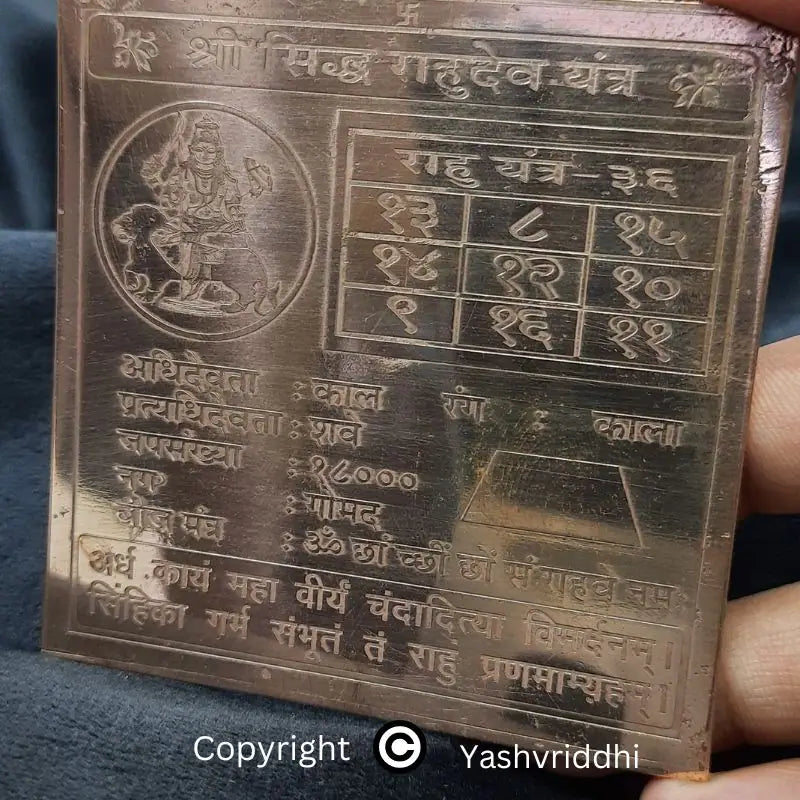 श्री सिद्ध राहुदेव यंत्र
राहु यंत्र-३६
१३ ८ १५
१४ १२ १०
९ १६ ११
अधिदैवता : काल रंग : काला
प्रत्यधिदेवता : शर्व
जपसंख्या : १८०००
नग : गोमद
बीज मंत्र : ॐ छां च्छीं छों सं राहवे नमः
अर्ध कायं महा वीर्यं चंदादित्या विमर्दनम्।
सिंहिका गर्भ संभूतं तं राहु प्रणमाम्यहम्।
Copyright © Yashvriddhi